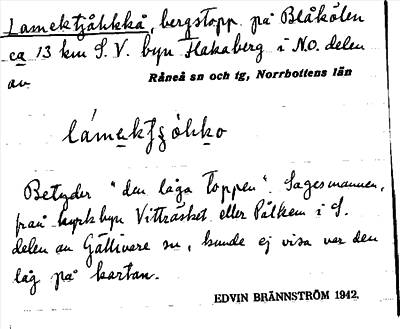 Lamektjåhkkå, bergstopp på Blåkölen
ca 13 km S.V. byn Flakaberg i N.O. delen
av Råneå sn och tg, Norrbottens län
lámektjåhko
Betyder "den låga toppen". Sagesmannen,
från kyrkbyn Vitträsket eller Pålkem i S.
delen av Gällivare sn, kunde ej visa var den
låg på kartan.
EDVIN BRÄNNSTRÖM 1942.